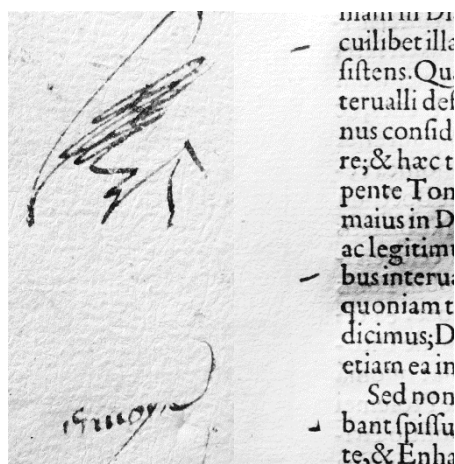 cuilibet illa
ſiſtens. Qu
terualli def
nus confid
re; & hæc t
pente Ton
maius in D
ac legitimu
bus interua
quoniam t
dicimus; D
etiam ea in
Sed non
bant ſpiſſu
te, & Enha